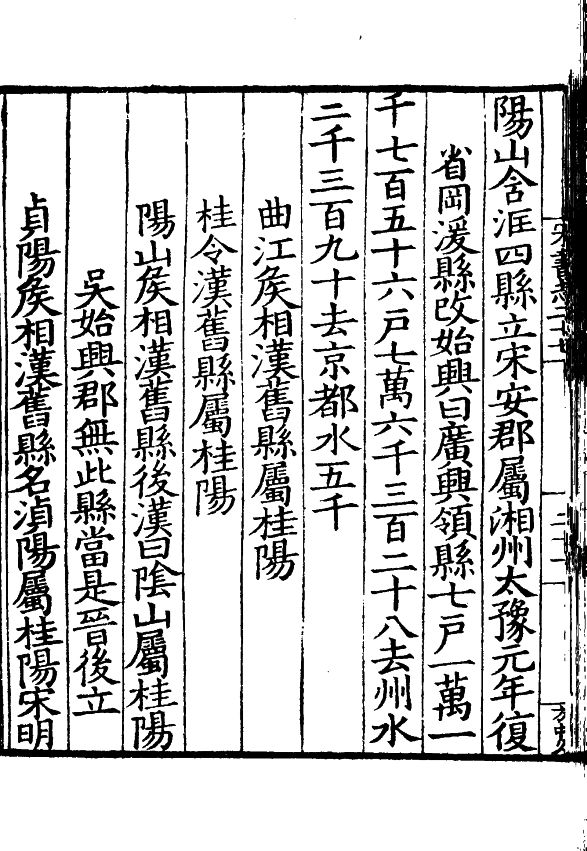 陽山含洭四縣立宋安郡屬湘州太豫元年復
省岡溭縣改始興曰廣興領縣七戸一萬一
千七百五十六戸七萬六千三百二十八去州水
二千三百九十去京都水五千
曲江矦相漢舊縣屬桂陽
桂令漢舊縣屬桂陽
陽山矦相漢舊縣後漢曰隂山屬桂陽
吳始興郡無此縣當是晉後立
貞陽矦相漢舊縣名湞陽屬桂陽宋明